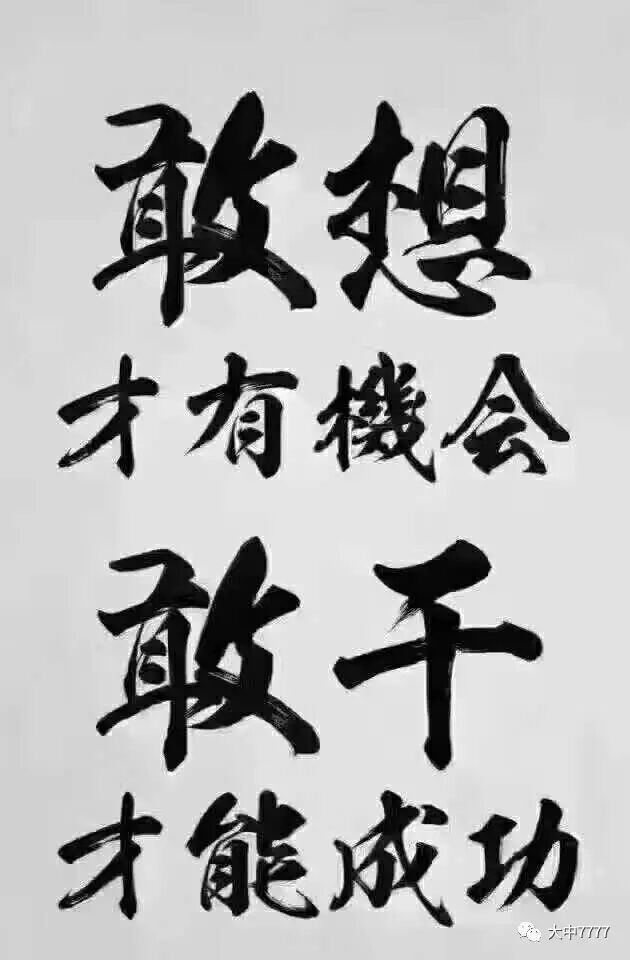 敢想
才有機会
敢干
才能成功
大中7777